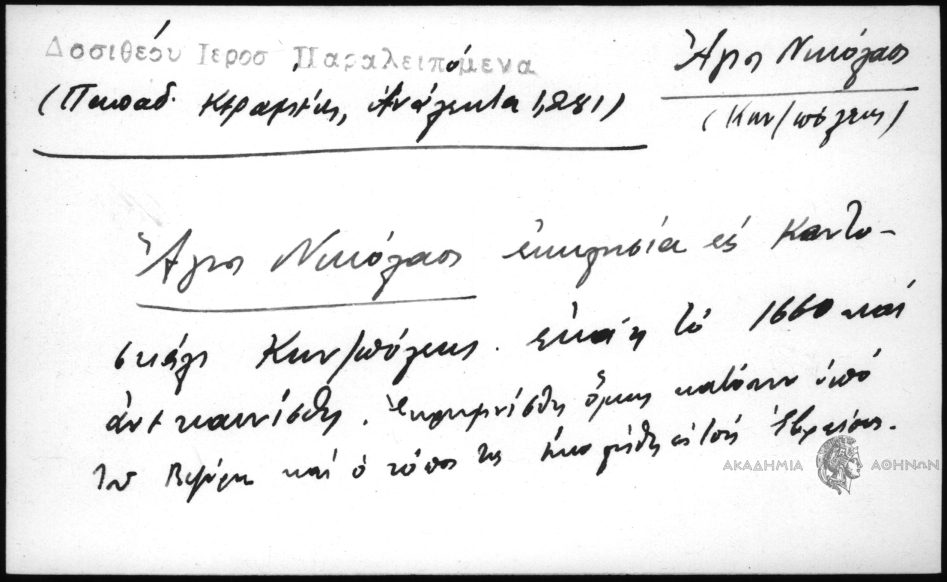 Δοσιθέου Ιεροσ Παραλειπόμενα
(Παπαδ. Κεραμεύς, Ἀνάλεκτα 1, 281)
Ἅγιος Νικόλαος
(Κων/πόλεως)
Ἅγιος Νικόλαος ἐκκλησία εἰς Κοντο-
σκάλι Κων/πόλεως. ἐκάη τὸ 1660 καὶ
ἀνεκαινίσθη. Ἐκρημνίσθη ὅμως κατόπιν ὑπὸ
τοῦ Βεζύρη καὶ ὁ τόπος της εἰς τοὺς Ἑβραίους.
ΑΚΑΔΗΜΙΑ ΑΘΗΝΩΝ